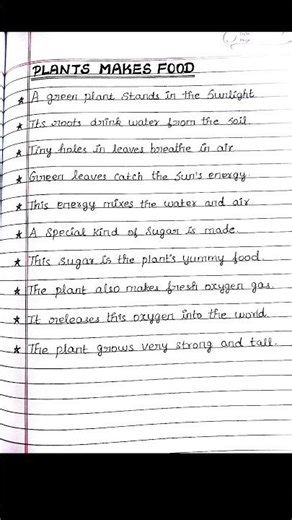 PLANTS MAKES FOOD
★ A green plant stands in the Sunlight.
★ Its roots drink water from the soil.
★ Tiny holes in leaves breathe in air.
★ Green leaves catch the Sun's energy.
★ This energy mixes the water and air.
★ A Special kind of Sugar is made.
★ This Sugar is the plant's yummy food.
★ The plant also makes fresh oxygen gas.
★ It releases this oxygen into the world.
★ The plant grows very strong and tall.